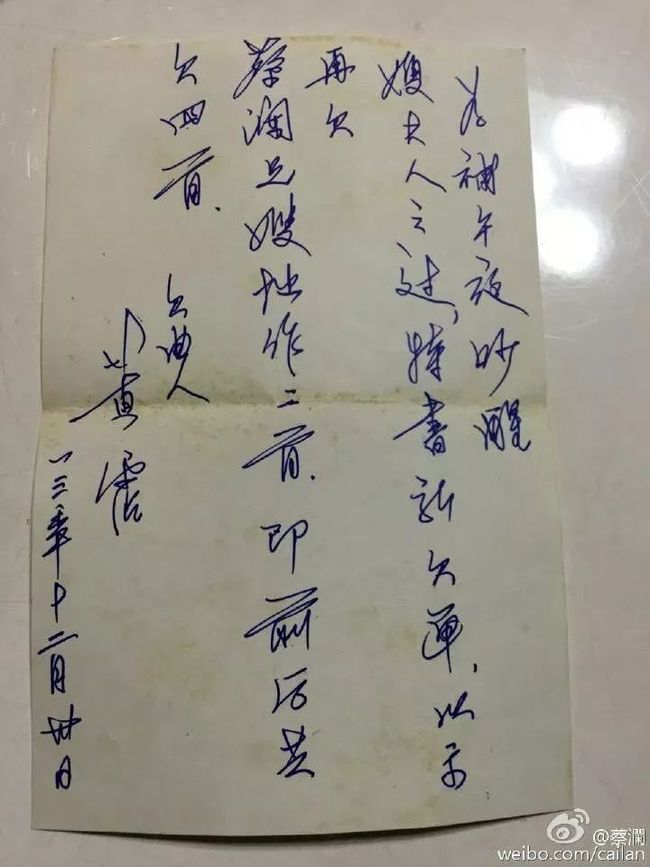 为補午夜吵醒
嫂夫人之过，特書新欠單，以示
再欠
蔡瀾兄嫂拙作二首，即前后共
欠四首。
欠曲人
黄霑
一三年十二月卅日
@蔡瀾
weibo.com/cailan